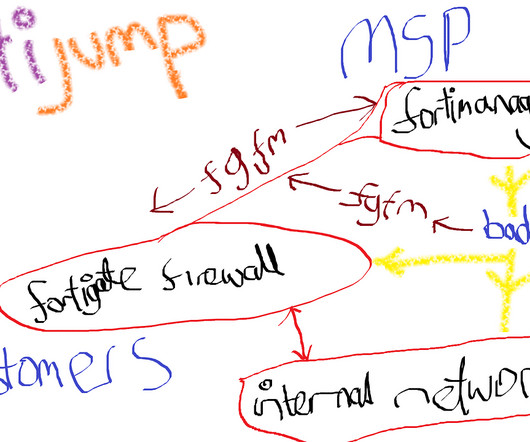 ti jump
MSP
fortimanag
fgfm
fgfm
bad
fortigate firewall
tomers
internal networ